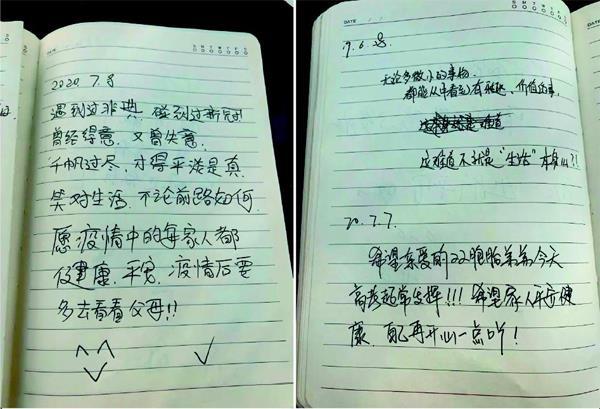 DATE
S M T W T F S
2020.7.8
遇到过非典 碰到过新冠
曾经得意，又曾失意
千帆过尽，才得平淡是真
笑对生活，不论前路如何
愿疫情中的每家人都
健康，平安，疫情后要
多去看看父母!!
DATE
S M T W T F S
19.6.28.
无论多微小的事物，
都能从中看到有价值的事，
这难道不就是“生活”本身么?!
20.7.7.
希望亲爱的双胞胎弟弟今天
高考超常发挥!!! 希望家人平安健
康，再开心一点吖!